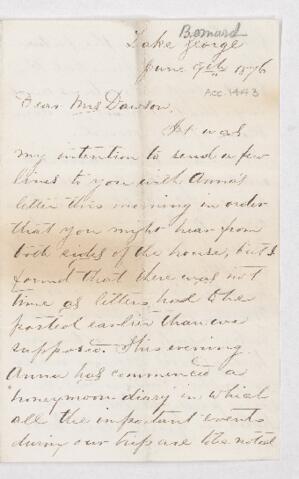 Bernard
Lake George
June 9th 1876
Acc 1443
Dear Mrs Dawson,
It was
my intention to send a few
lines to you with Anna's
letter this morning in order
that you might hear from
both sides of the house, but I
found that there was not
time as letters had to be
posted earlier than we
supposed. This evening
Anna has commenced a
"honeymoon diary" in which
all the important events
during our trip are to be noted